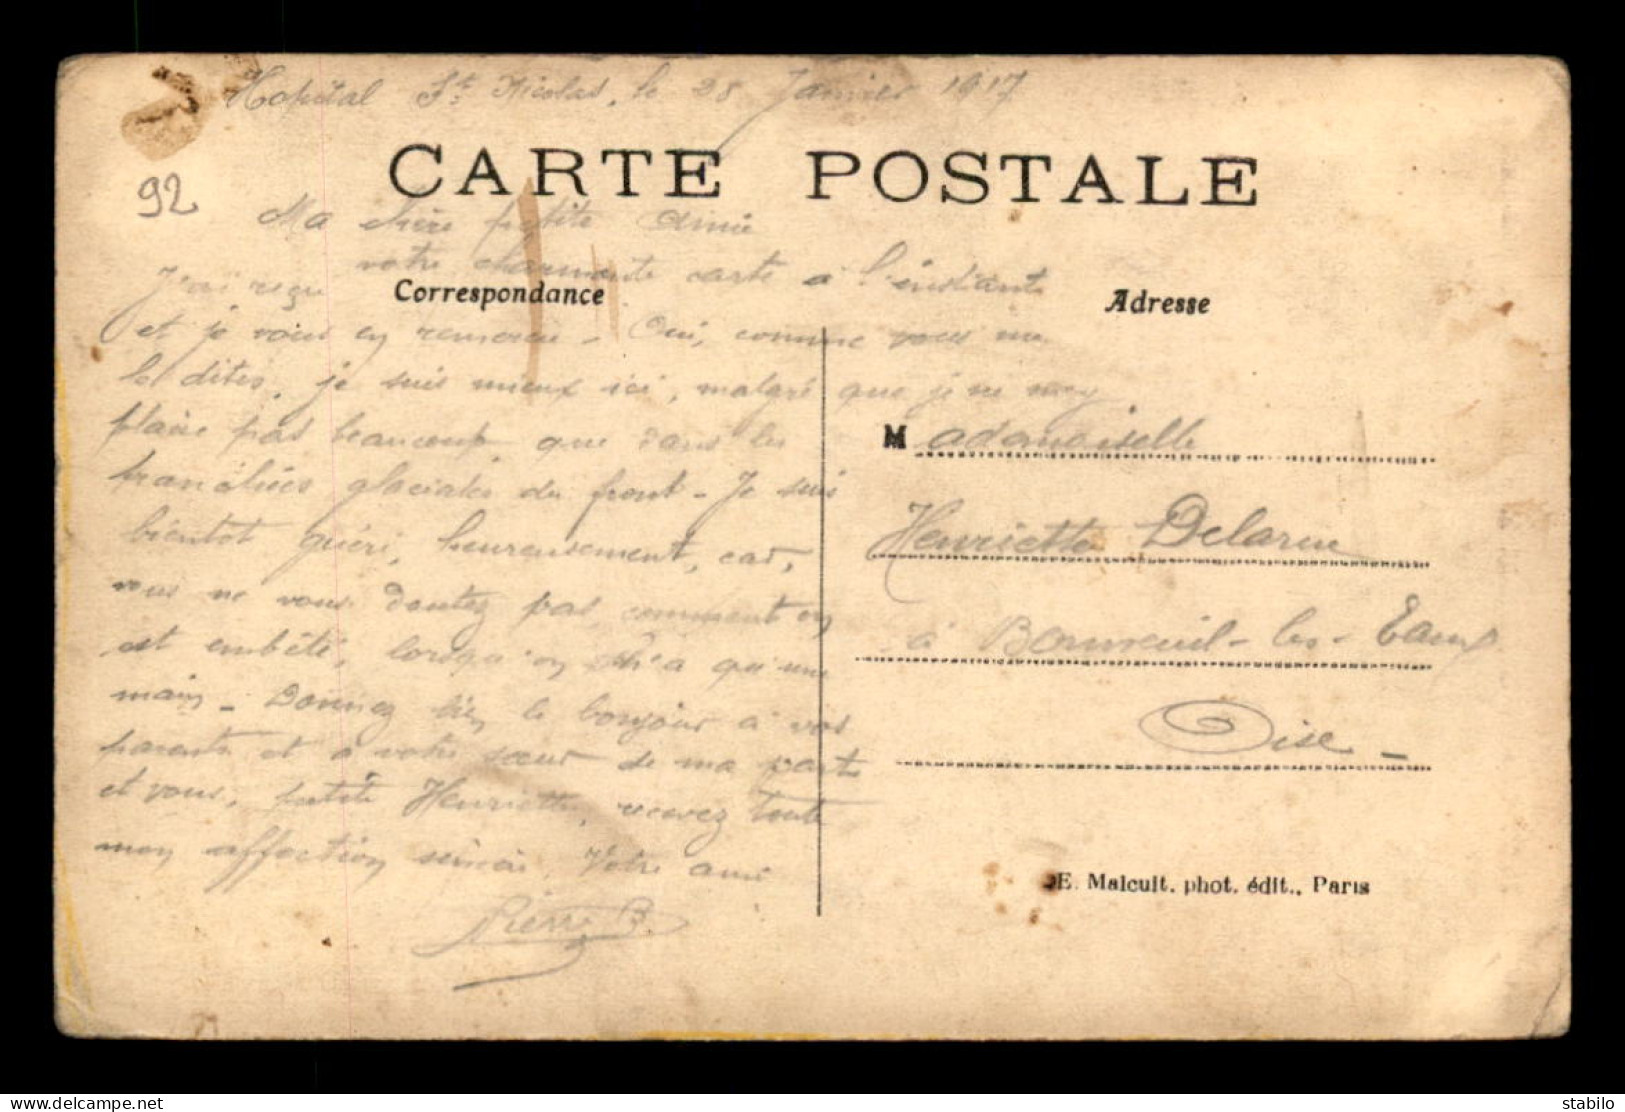 Hopital St. Nicolas, le 28 Janvier 1917
CARTE POSTALE
92
Ma chère petite Amie
J'ai reçu votre charmante carte à l'instant
Correspondance
Adresse
et je vous en remercie - Oui, comme vous me
le dites, je suis mieux ici, malgré que je ne m'y
plaise pas beaucoup, que dans les
tranchées glaciales du front - Je suis
bientot guéri, heureusement, car,
vous ne vous doutez pas, comment on
est embêté, lorsqu'on n'a qu'une
main - Donnez bien le bonjour à vos
parents et à votre sœur de ma part
et vous, petite Henriette, recevez toute
mon affection sincère. Votre ami
Pierre B.
Mademoiselle
Henriette Delarue
à Bonneuil-les-Eaux
Oise -
E. Malcuit, phot. édit., Paris
delcampe.net
stabilo